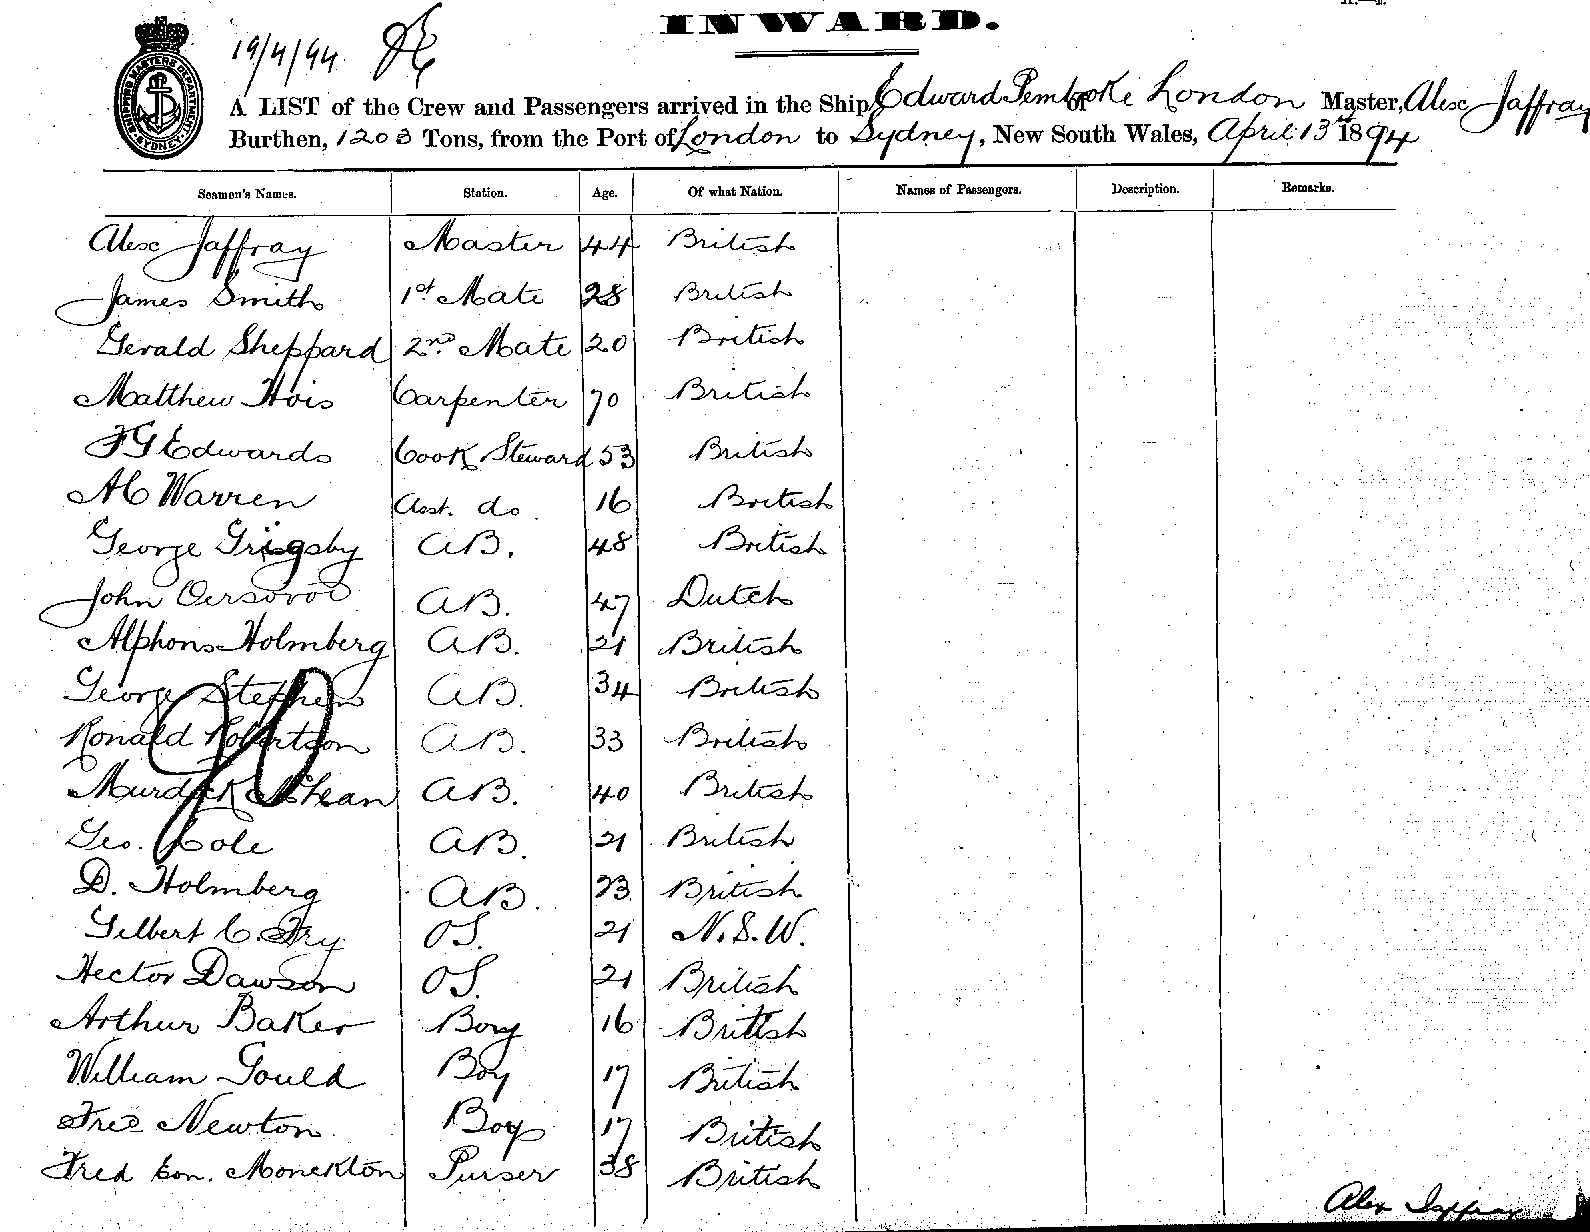 INWARD.
19/4/94
A LIST of the Crew and Passengers arrived in the Ship Edward Pembroke of London Master, Alex Jaffray
Burthen, 1203 Tons, from the Port of London to Sydney, New South Wales, April 13th 1894
SHIPPING MASTERS DEPARTMENT SYDNEY
Seamen's Names. Station. Age. Of what Nation. Names of Passengers. Description. Remarks.
Alex Jaffray Master 44 British
James Smith 1st Mate 28 British
Gerald Sheppard 2nd Mate 20 British
Matthew Hois Carpenter 70 British
F G Edwards Cook Steward 53 British
A C Warren Asst. do. 16 British
George Grigsby AB. 48 British
John AB. 47 Dutch
Alphons Holmberg AB. 21 British
George Stephens AB. 34 British
Ronald Robertson AB. 33 British
Murdock McLean AB. 40 British
Geo. Cole AB. 21 British
D. Holmberg AB. 23 British
Gilbert C. Fry OS. 21 N.S.W.
Hector Dawson OS. 21 British
Arthur Baker Boy 16 British
William Gould Boy 17 British
Fred Newton Boy 17 British
Fred Con. Monckton Purser 38 British
Alex Jaffray